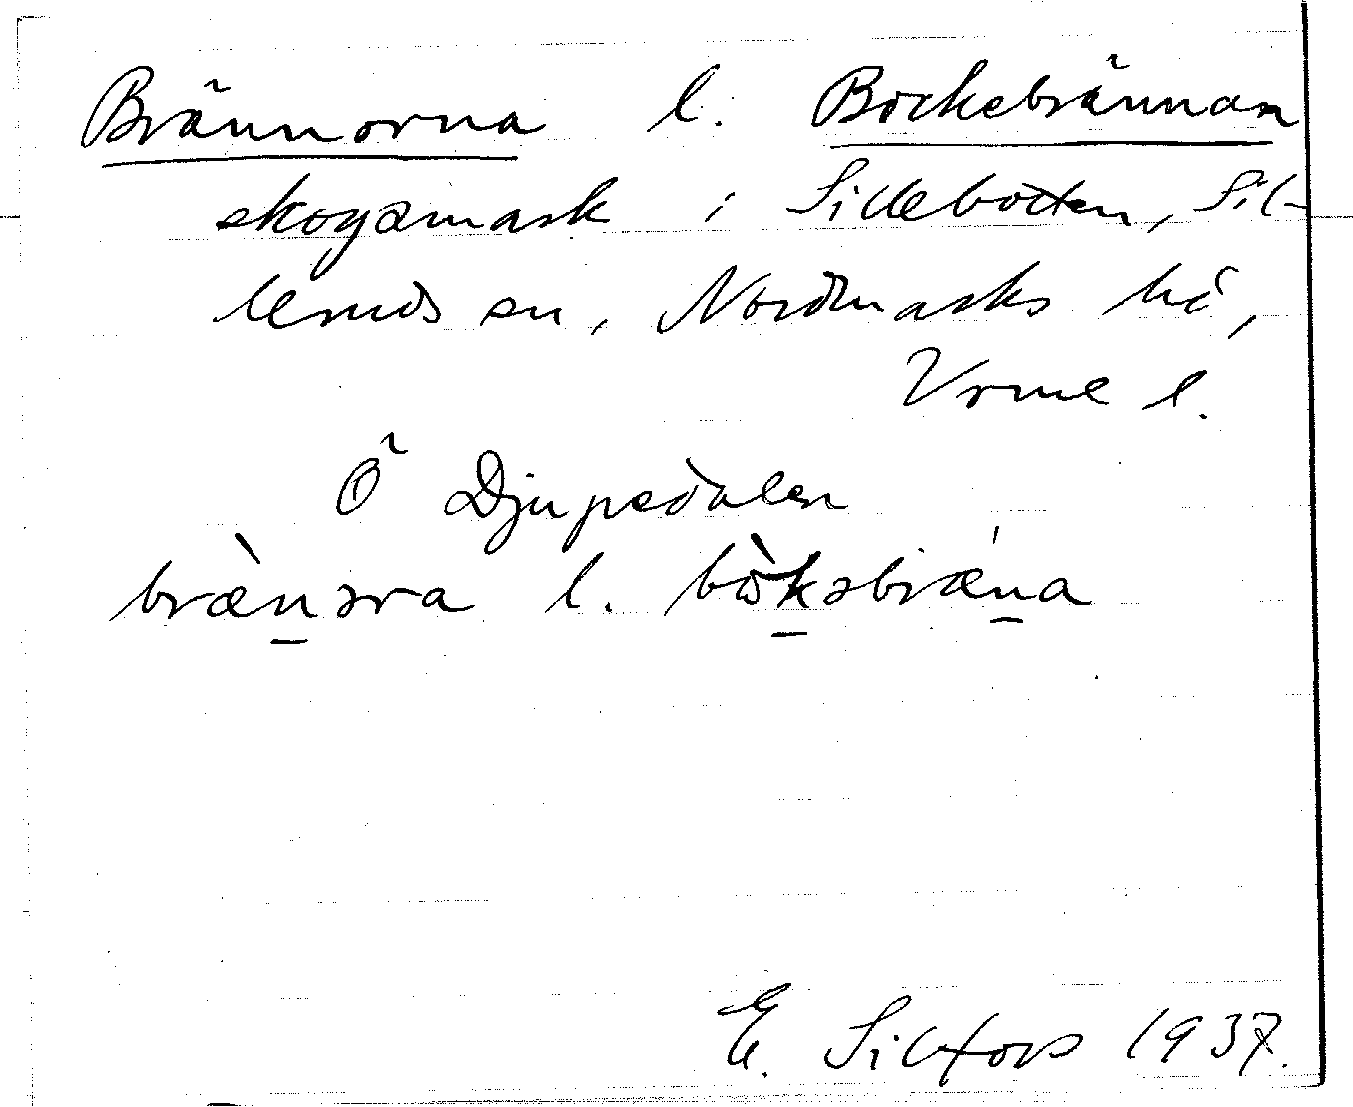 Brännorna l. Bockebrännan
skogsmark i Sillebotten, Sil-
leruds sn, Nordmarks hd,
Vrml l.
Ö Djupedalen
bræ̀nora l. bòksbræna
E. Sillfors 1937.